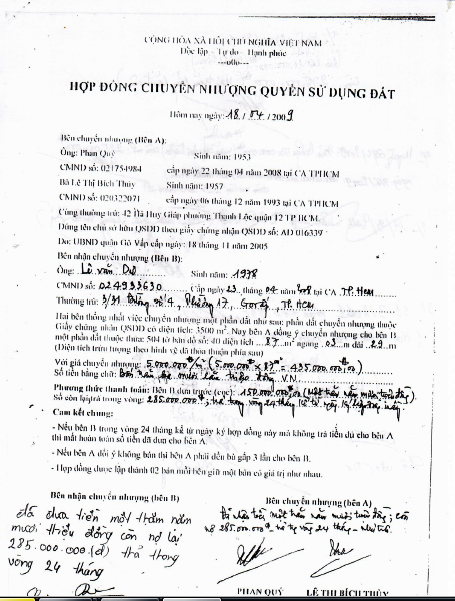 CỘNG HÒA XÃ HỘI CHỦ NGHĨA VIỆT NAM
Độc lập - Tự do - Hạnh phúc
---o0o---
HỢP ĐỒNG CHUYỂN NHƯỢNG QUYỀN SỬ DỤNG ĐẤT
Hôm nay ngày: 18 / 04 / 2009
Bên chuyển nhượng (Bên A):
Ông: Phan Quý Sinh năm: 1953
CMND số: 021754984 cấp ngày 22 tháng 04 năm 2008 tại CA TPHCM
Bà Lê Thị Bích Thủy Sinh năm: 1957
CMND số: 020322071 cấp ngày 06 tháng 12 năm 1993 tại CA TPHCM
Cùng thường trú: 42 Hà Huy Giáp phường Thạnh Lộc quận 12 TP HCM.
Đứng tên chủ sở hữu QSDĐ theo giấy chứng nhận QSDĐ số: AD 016339
Do: UBND quận Gò Vấp cấp ngày: 18 tháng 11 năm 2005
Bên nhận chuyển nhượng (Bên B):
Ông: Lê văn Sinh năm: 1978
CMND số: 024933630 Cấp ngày 23 tháng 04 năm tại CA TP. HCM
Thường trú: 3/31 số 4, Phường 17, Gò Vấp, TP. HCM
Hai bên thống nhất việc chuyển nhượng một phần đất như sau: phần đất chuyển nhượng thuộc
Giấy chứng nhận QSDĐ có diện tích: 3500 m². Nay bên A đồng ý chuyển nhượng cho bên B
một phần đất thuộc thửa: 504 tờ bản đồ số: 40 diện tích ...87...m² ngang .03.m dài .29.m
(Diện tích trên tượng theo hình vẽ đã thỏa thuận phía sau)
Với giá chuyển nhượng: 5.000.000đ/m² (5.000.000đ x 87m² = 435.000.000,đ)
Số tiền bằng chữ: Bốn trăm ba mươi lăm triệu đồng V.N
Phương thức thanh toán: Bên B đưa trước (cọc): 150.000.000,đ (một trăm năm mươi triệu đồng)
Số còn lại trong vòng: 285.000.000đ, trả trong vòng 24 tháng kể từ ngày ký hợp đồng này.
- Cam kết chung:
- Nếu bên B trong vòng 24 tháng kể từ ngày ký hợp đồng này mà không trả tiền đủ cho bên A
thì mất hoàn toàn số tiền đã đưa cho bên A.
- Nếu bên A đổi ý không bán thì bên A phải đền bù gấp 3 lần cho bên B.
- Hợp đồng được lập thành 02 bản mỗi bên giữ một bản có giá trị như nhau.
Bên nhận chuyển nhượng (bên B) Bên chuyển nhượng (bên A)
đã đưa tiền một trăm năm
mươi triệu đồng còn nợ lại
285.000.000 (đ) trả trong
vòng 24 tháng
Đã nhận tiền một trăm năm mươi triệu đồng, còn
nợ 285.000.000đ trả vòng 24 tháng
PHAN QUÝ LÊ THỊ BÍCH THỦY